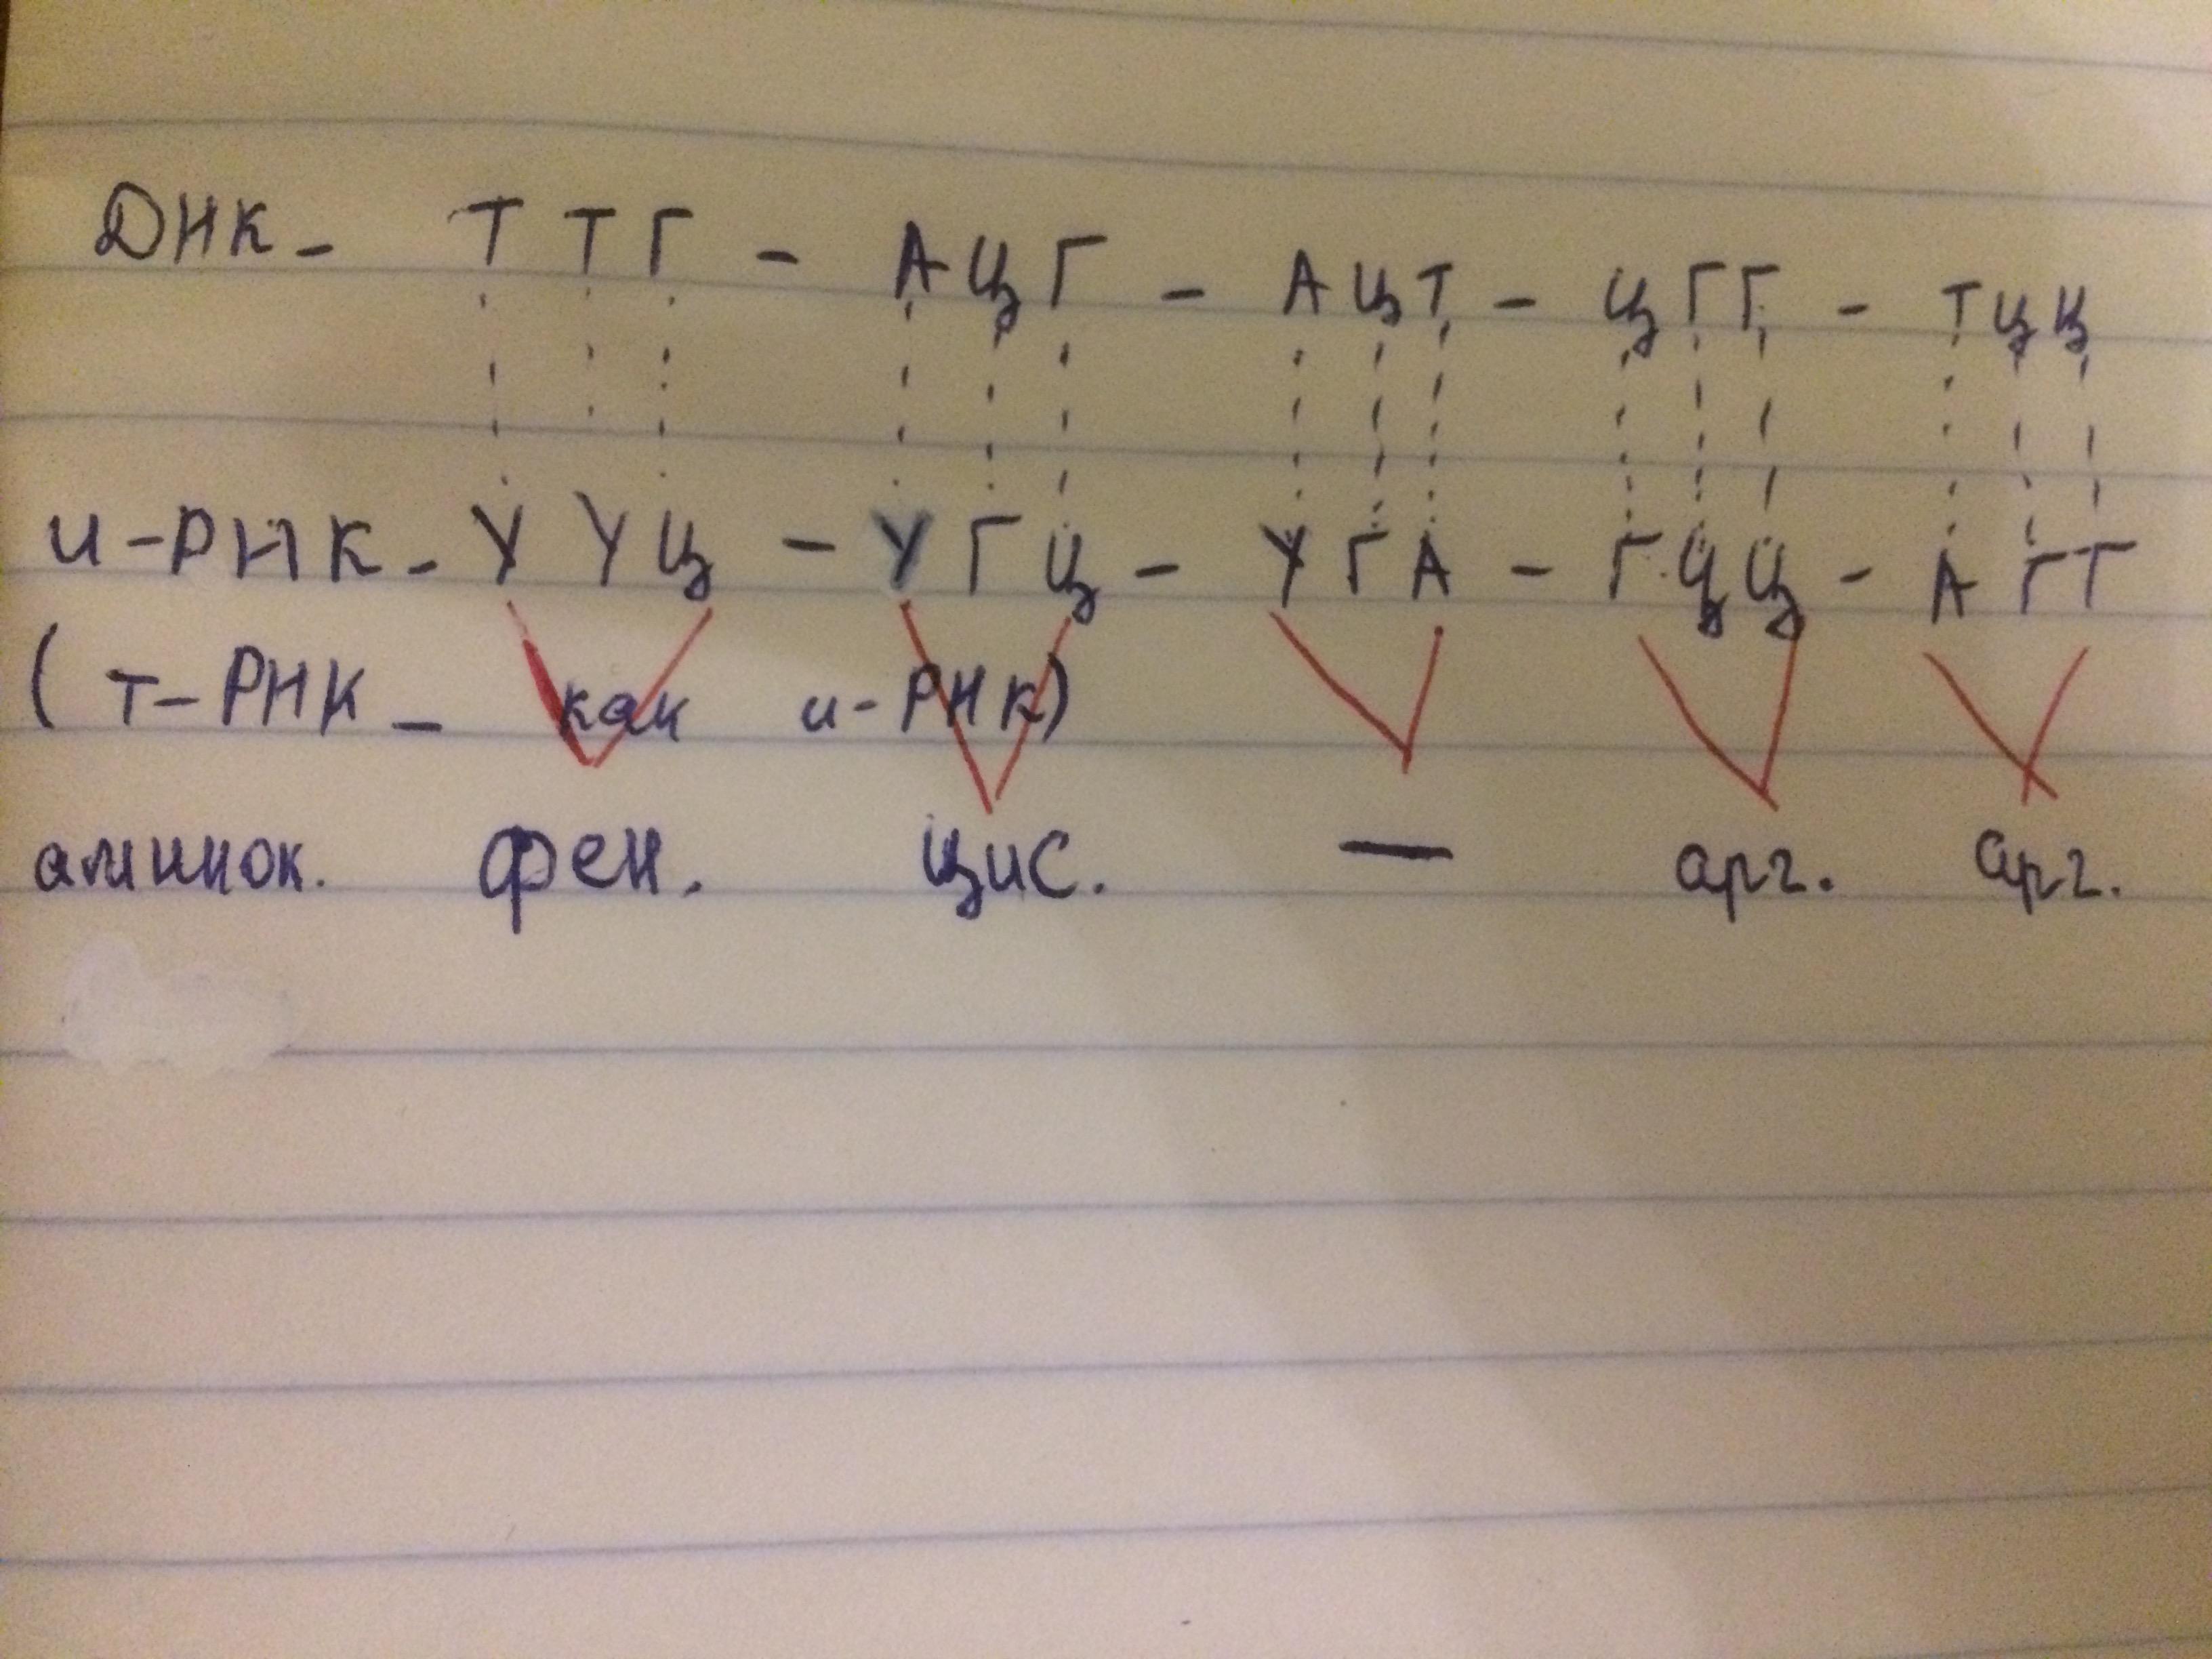 ДНК - Т Т Г - А Ц Г - А Ц Т - Ц Г Г - Т Ц Ц
и-РНК - У У Ц - У Г Ц - У Г А - Г Ц Ц - А Г Г
( т-РНК - как и-РНК)
аминок. фен. цис. — арг. арг.